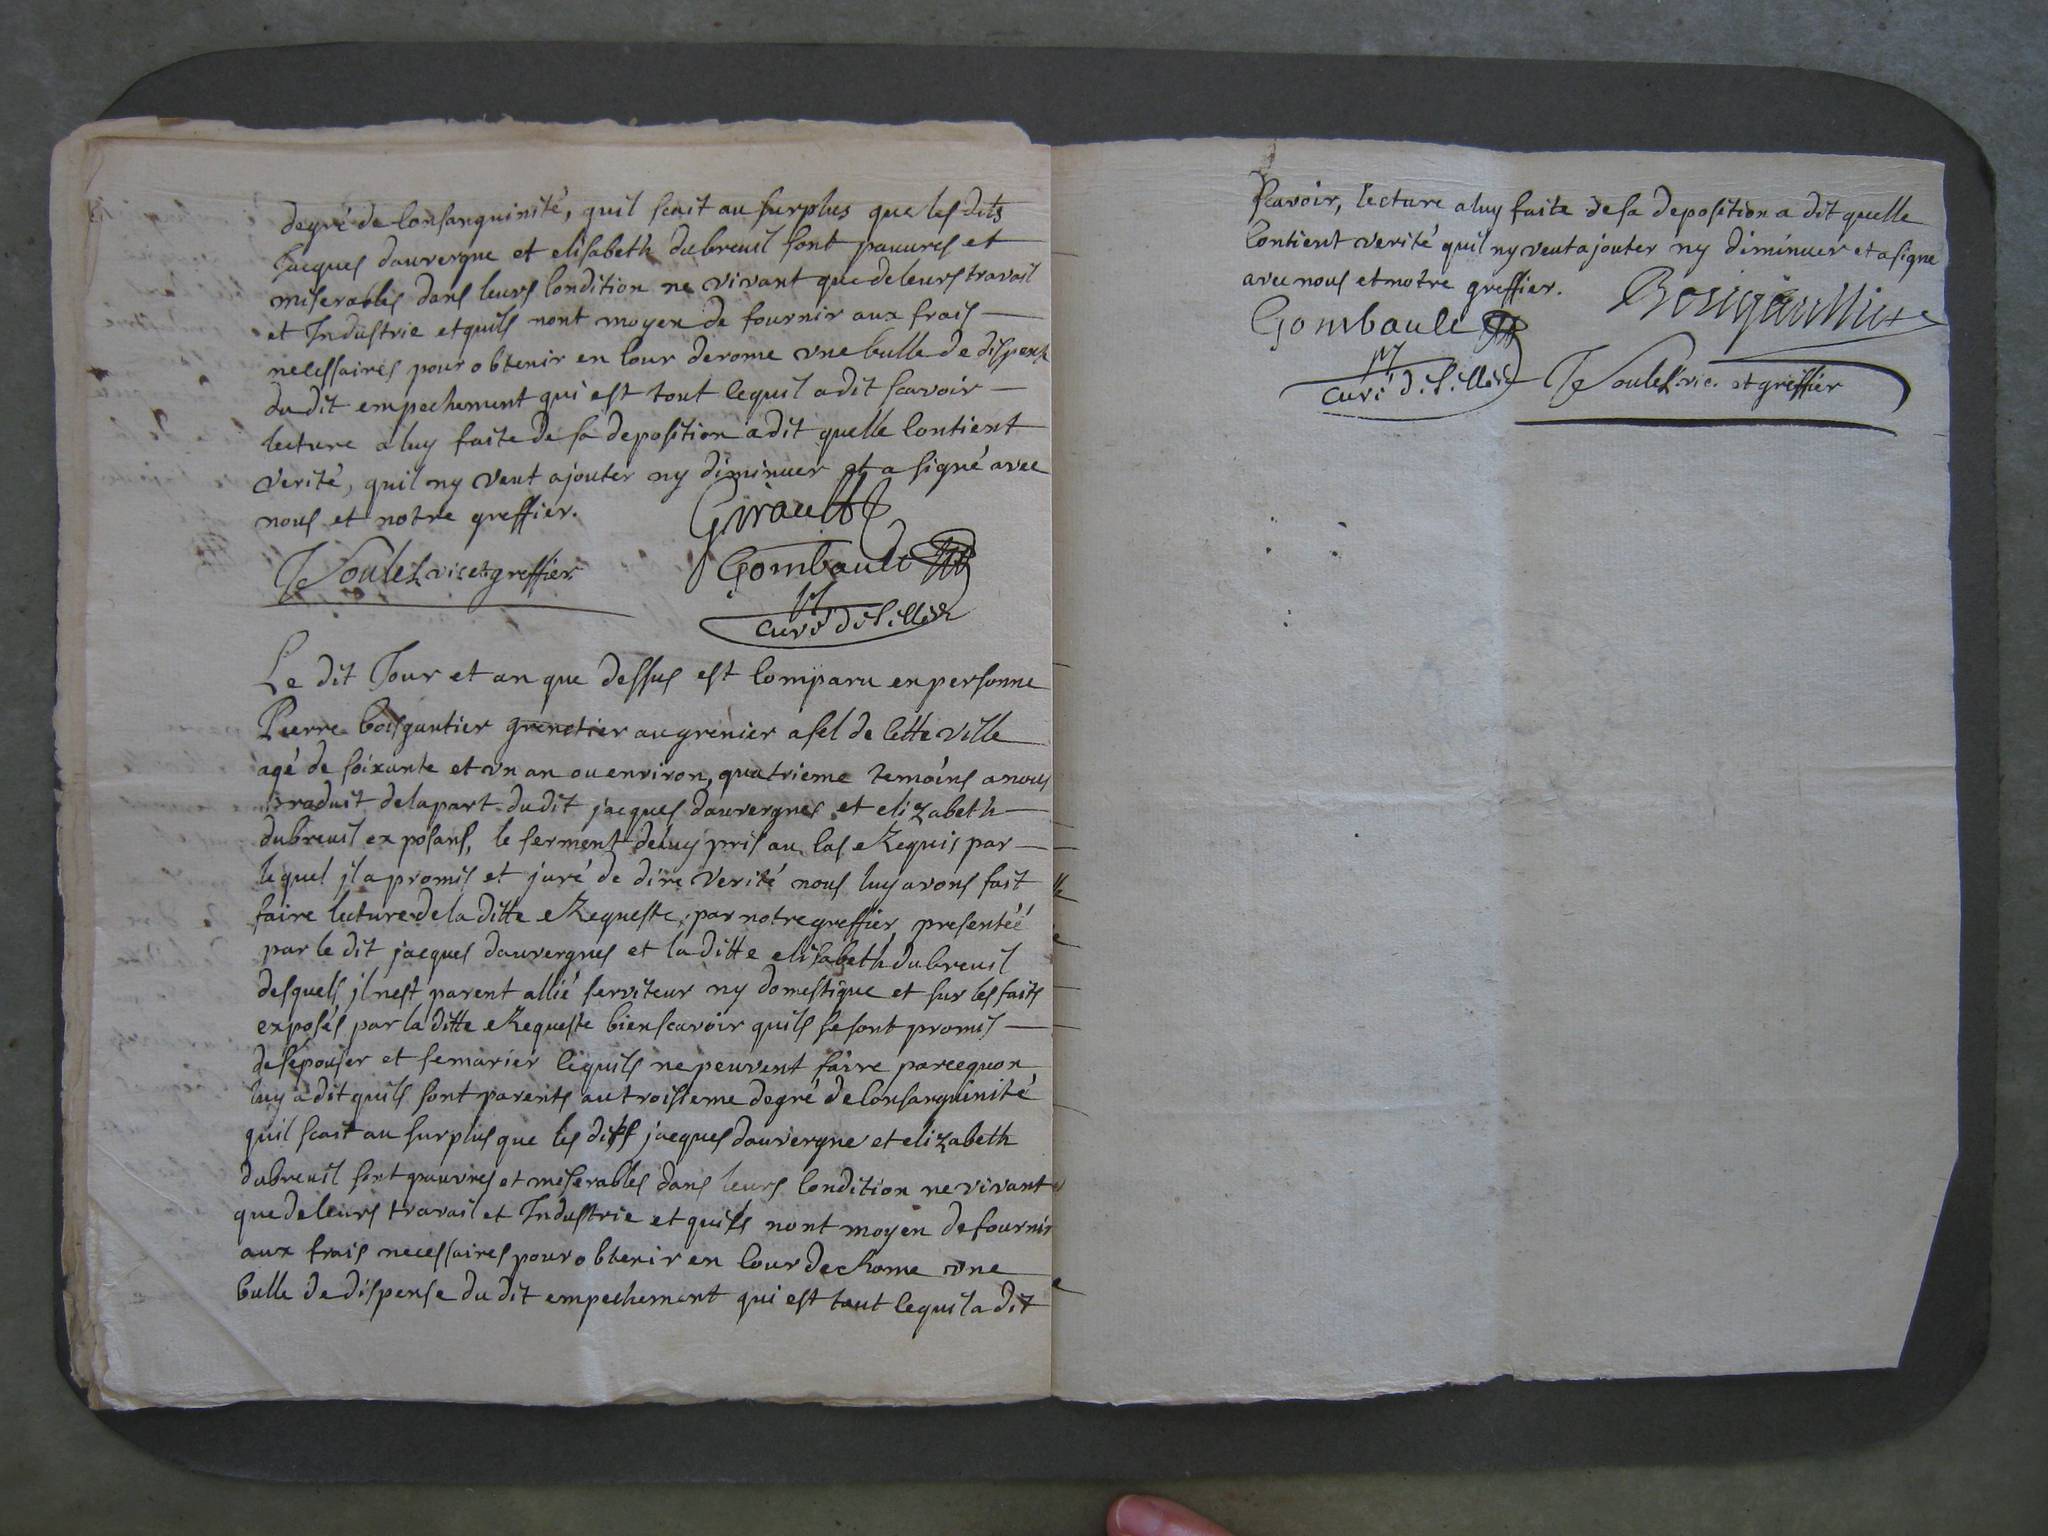 degré de Consanguinité, quil scait au surplus que les dits
Jacques dauvergne et elisabeth dubreuil sont pauvres et
miserables dans leurs Condition ne vivant que de leurs travail
et Industrie et quils nont moyen de fournir aux frais
necessaires pour obtenir en Cour de rome une bulle de dispense
du dit empechement qui est tout lequil a dit scavoir
lecture a luy faite de sa deposition a dit quelle Contient
verité, quil ny veut ajouter ny diminuer et a signé avec
nous et notre greffier.
Girault
Gombault
curé de
vice greffier
Le dit Jour et an que dessus est Comparu en personne
Pierre boisgautier grenetier au grenier a sel de Cette ville
agé de soixante et un an ou environ, quatrieme temoins a nous
traduit de la part du dit jacques dauvergnes et elizabeth
dubreuil exposans, le serment de luy pris au Cas Requis par
lequel jl a promis et juré de dire verité nous luy avons fait
faire lecture de la ditte Requeste, par notre greffier presentéé
par le dit jacques dauvergnes et la ditte elisabeth dubreuil
desquels jl nest parent allié serviteur ny domestique et sur les faits
exposés par la ditte Requeste bien scavoir quils se sont promis
de sépouser et se marier Cequils ne peuvent faire parcequon
luy a dit quils sont parents au troisieme degré de Consanguinité
quil scait au surplus que les dits jacques dauvergne et elizabeth
dubreuil sont pauvres et miserables dans leurs Condition ne vivant
que de leurs travail et Industrie et quils nont moyen de fournir
aux frais necessaires pour obtenir en Cour de Rome une
bulle de dispense du dit empechement qui est tout Cequil a dit
scavoir, lecture a luy faite de sa deposition a dit quelle
Contient verité quil ny veut ajouter ny diminuer et a signé
avec nous et notre greffier.
Gombault
curé de
et greffier